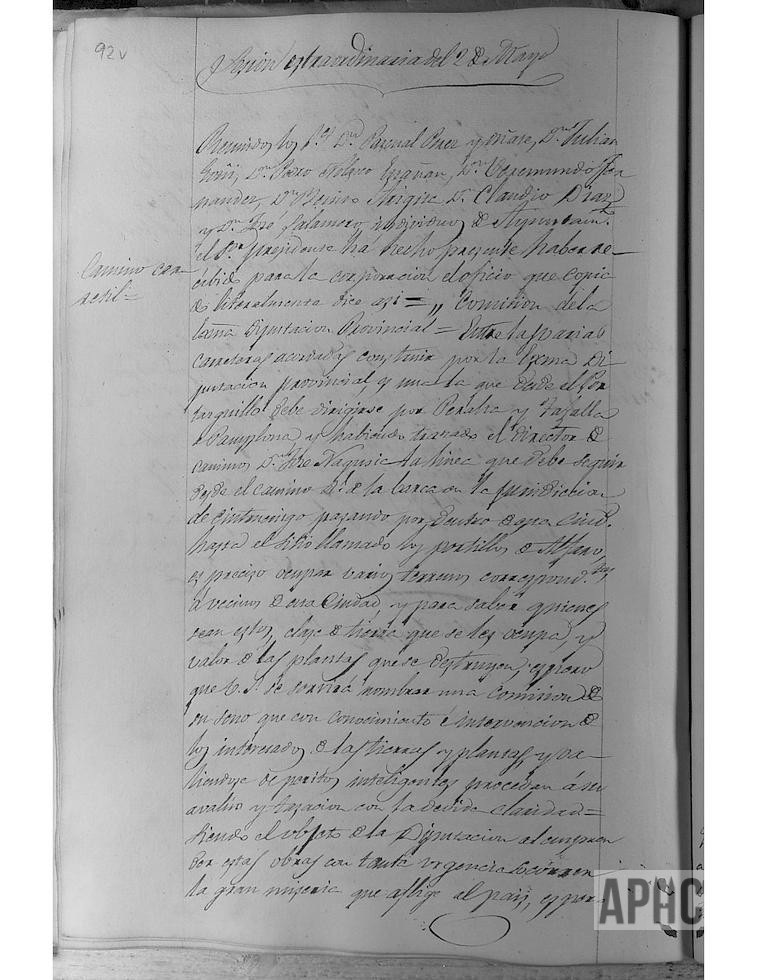 92v
Sesion extraordinaria del 2 de Mayo
Reunidos los S.es D.n Pascual Perez y Oñate, D.n Julian
Goñi, D.n Pedro Velasco D.n Veremundo Fer
nandez, D.n Benino D.n Claudio Diaz
y D.n José Salamero, individuos de Ayuntam.to
el S.or presidente ha hecho presente haber re-
Camino car
retil =
cibido para la corporacion el oficio que copia
do literalmente dice asi = „ Comision de la
Exma Diputacion Provincial = Entre las varias
carreteras acordadas construir por la Exma Di
putacion provincial es una la que desde el Por
tazguillo debe dirigirse por Peralta y Tafalla
a Pamplona y habiendo trazado el Director de
caminos D.n José Nagusia la linea que debe seguir
desde el camino R.l de la barca en la jurisdiccion
de Cintruenigo pasando por dentro de esa Ciud.
hasta el sitio llamado los portillos de Alfaro,
es preciso ocupar varios terrenos correspond.tes
á vecinos de esa Ciudad, y para saber quienes
sean estos, clase de tierra que se les ocupa, y
valor de las plantas que se destruyen, espero
que V.S. se servirá nombrar una comision de
su seno que con conocimiento é intervencion de
los interesados de las tierras y plantas, y va-
liendose de peritos inteligentes procedan á su
avaluo y tasacion con la devida claridad =
Siendo el objeto de la Diputacion al empren
der estas obras con tanta urgencia socorrer
la gran miseria que aflige al pais, espero
APHC